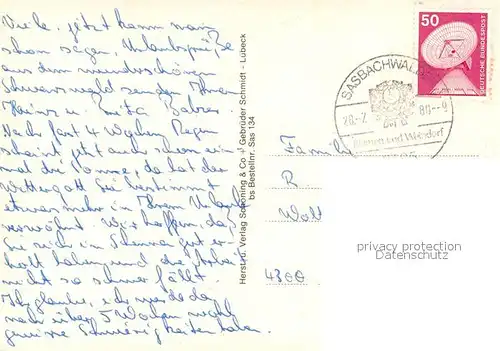 Viele, jetzt kann man
schon sagen, Urlaubsgrüße
aus dem wunderschönen
Schwarzwald senden Ihnen
Heinz u. Rita
Nach fast 4 Wochen Regen
scheint jetzt auch schon ein-
mal die Sonne, da hat der
Wettergott Sie bestimmt
etwas mehr in Ihrem Urlaub
verwöhnt. Wir hoffen, daß
Sie sich in gut er-
holt haben und die Arbeit
nicht so schwer fällt.
Ich glaube, ich werde da
nach über 5 Wochen wohl
gewisse Schwierigkeiten haben.
Herst. u. Verlag Schöning & Co + Gebrüder Schmidt - Lübeck
bs Bestellnr. Sas 134
SASBACHWALDEN
Blumen und Weindorf
50
DEUTSCHE BUNDESPOST
Familie
R
Walt
4300
privacy protection
VERALDI.com